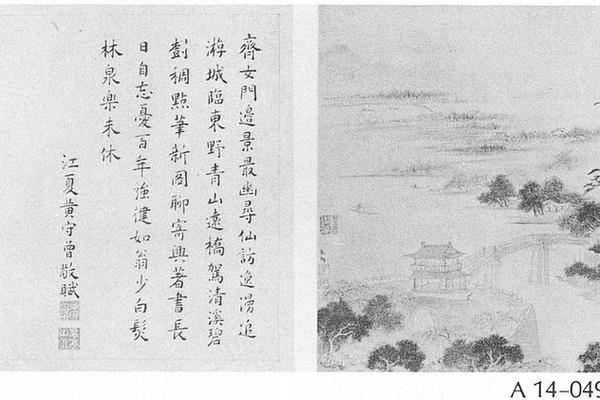 齊女門邊景最幽尋仙訪逸漫追
游城臨東野青山遠橋駕清溪碧
樹稠點筆新圖聊寄興著書長
日自忘憂百年強健如翁少白髮
林泉樂未休
江夏黃守曾敬賦
A 14-049